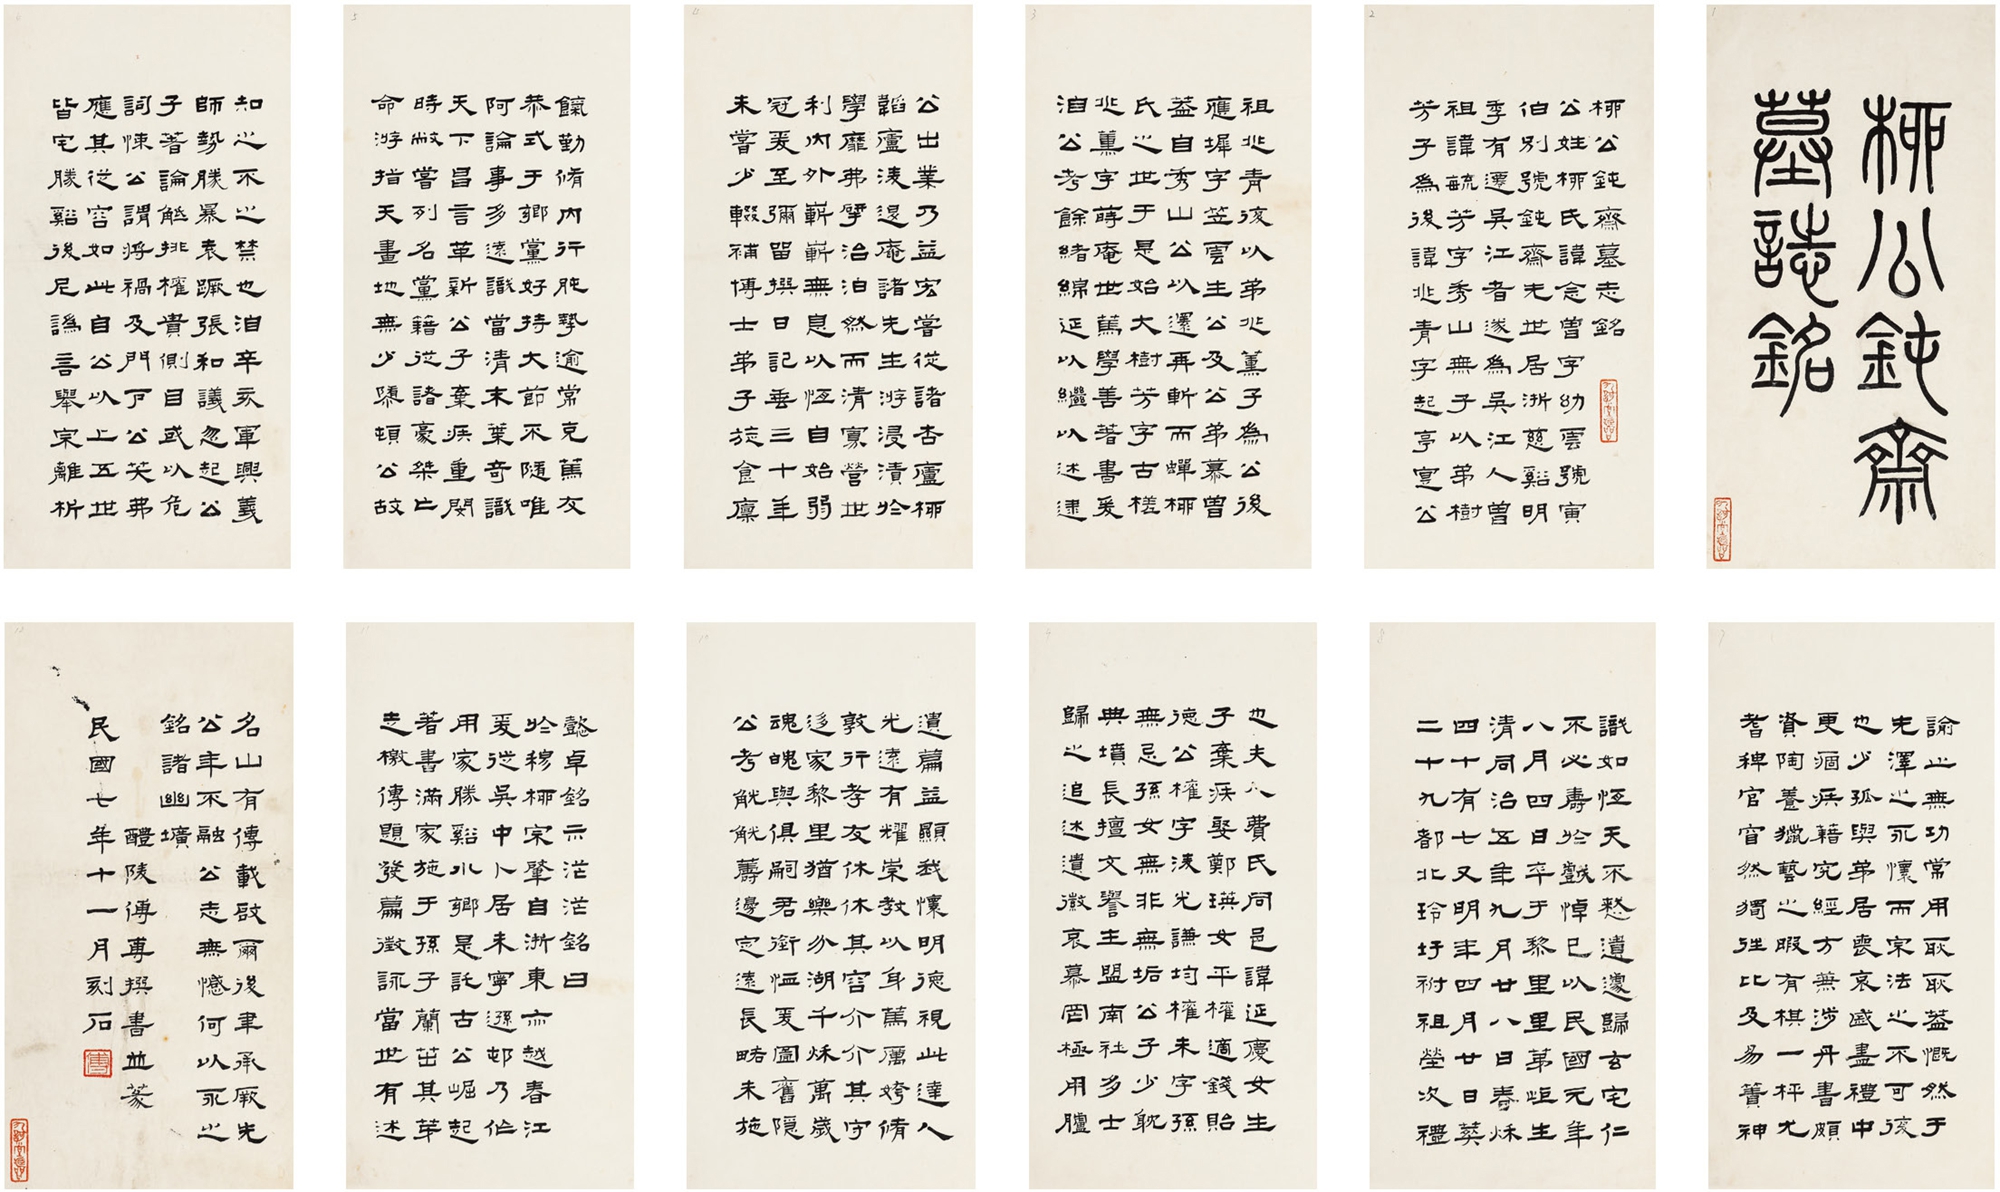 柳公鈍齋
墓誌銘
柳公鈍齋墓志銘
公姓柳氏諱念曾字幼雲號寅
伯別號鈍齋先世居浙慈谿明
季有遷吳江者遂為吳江人曾
祖諱毓芳字秀山無子以弟樹
芳子為後諱兆青字起亭寔公
祖兆青復以弟兆薰子為公後
應墀字笠雲生公及公弟慕曾
蓋自秀山公以還再斬而蟬柳
氏之世于是始大樹芳字古槎
兆薰字蒔庵世篤學善著書爰
洎公考餘緒綿延以繼以述逮
公出業乃益宏嘗從諸杏廬柳
韜廬淩退庵諸先生游浸漬於
學靡弗擘治泊然而清寡營世
利內外嶄嶄無息以恆自始弱
冠爰至彌留撰日記垂三十年
未嘗少輟補博士弟子旋食廩
餼勤脩內行肫摯逾常克篤友
恭式于鄉黨好持大節不隨唯
阿論事多遠識當清末葉奇識
天下昌言革新公子棄疾重閔
時敝嘗列名黨籍從諸豪桀亡
命游指天畫地無少隳頓公故
知之不之禁也洎辛亥軍興義
師勢勝暴袁蹶張和議忽起公
子著論觝排權貴側目或以危
詞悚公謂將禍及門下公笑弗
應其從容如此自公以上五世
皆宅勝谿後尼譌言舉宗離析
諭之無功常用耿耿蓋慨然于
先澤之永懷而宗法之不可復
也少孤與弟居喪哀戚盡禮中
更痼疾籍究經方兼涉丹書頗
資陶養獵藝之暇有棋一枰尤
耆稗官窅然獨往比及易簀神
識如恆天不憖遺遽歸玄宅仁
不必壽於戲悼已以民國元年
八月四日卒于黎里里第岠生
清同治五年九月廿八日春秋
四十有七又明年四月廿日葬
二十九都北玲圩祔祖塋次禮
也夫人費氏同邑諱延慶女生
子棄疾娶鄭瑛女平權適錢貽
德公權字淩光謙均權未字孫
無忌孫女無非無垢公子少耽
典墳長擅文譽主盟南社多士
歸之追述遺徽哀慕罔極用臚
懿卓銘示茫茫銘曰
於穆柳宗肇自浙東亦越春江
爰從吳中卜居未寧遜邨乃作
用家勝谿水鄉是託古公崛起
著書滿家施于孫子蘭茁其芽
志檄傳題發篇徵詠當世有述
遺篇益顯我懷明德視此達人
光遠有耀崇教以身篤厲姱脩
敦行孝友休休其容介介其守
迻家黎里猶樂分湖千秋萬歲
魂魄與俱嗣君銜恤爰圖舊隱
公考觥觥籌邊定遠長略未施
名山有傳載啟爾後聿承厥先
公年不融公志無憾何以永之
銘諸幽壙
醴陵傅尃撰書並篆
民國七年十一月刻石